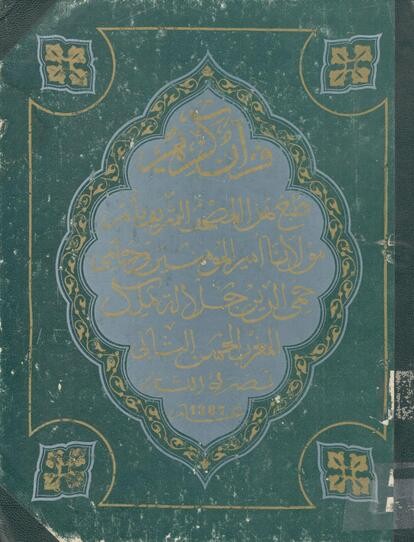 قرآن كريم
طبع هذا المصحف الشريف بأمر
مولانا أمير المؤمنين وحامى
حمى الدين جلالة ملك
المغرب الحسن الثاني
نصره الله
1387